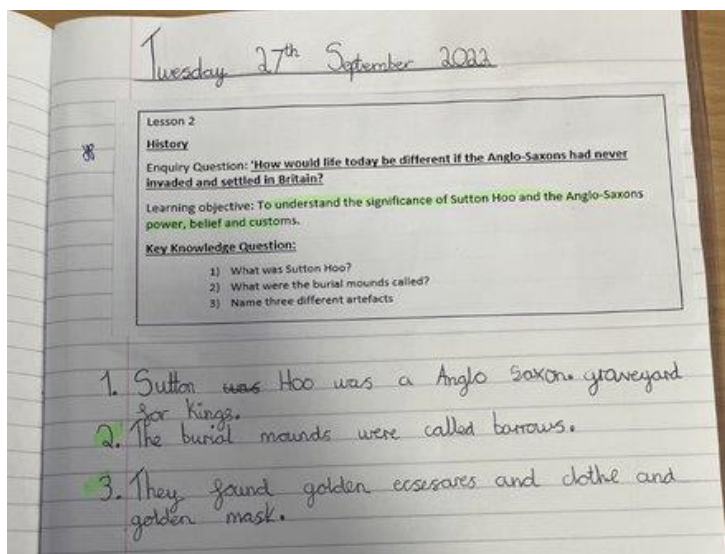 Tuesday 27th September 2022
Lesson 2
History
Enquiry Question: 'How would life today be different if the Anglo-Saxons had never
invaded and settled in Britain?
Learning objective: To understand the significance of Sutton Hoo and the Anglo-Saxons
power, belief and customs.
Key Knowledge Question:
1) What was Sutton Hoo?
2) What were the burial mounds called?
3) Name three different artefacts
1. Sutton was Hoo was a Anglo Saxon. graveyard
for Kings.
2. The burial mounds were called barrows.
3. They found golden ecsesares and clothe and
golden mask.